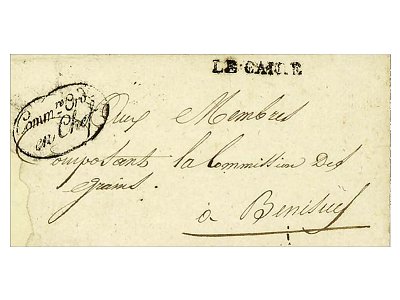 LE CAIRE
en Chef
Aux Membres
composant la Commission des
grains.
à Benisuef